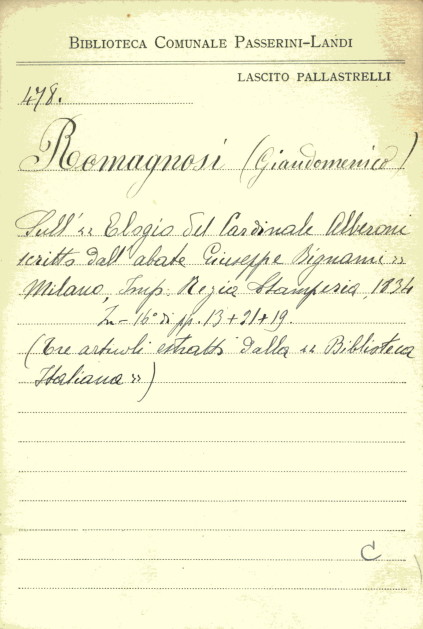 BIBLIOTECA COMUNALE PASSERINI-LANDI
LASCITO PALLASTRELLI
478.
Romagnosi (Giandomenico)
Sull' « Elogio del Cardinale Alberoni
scritto dall' abate Giuseppe Bignami »
Milano, Imp. Regia Stamperia, 1834
In-16° di pp. 13+21+19.
(Tre articoli estratti dalla « Biblioteca
Italiana »)
C